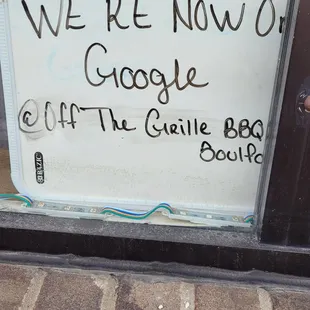 WE'RE NOW O
Google
@Off The Grille BBQ
Boulfo
BAZIC